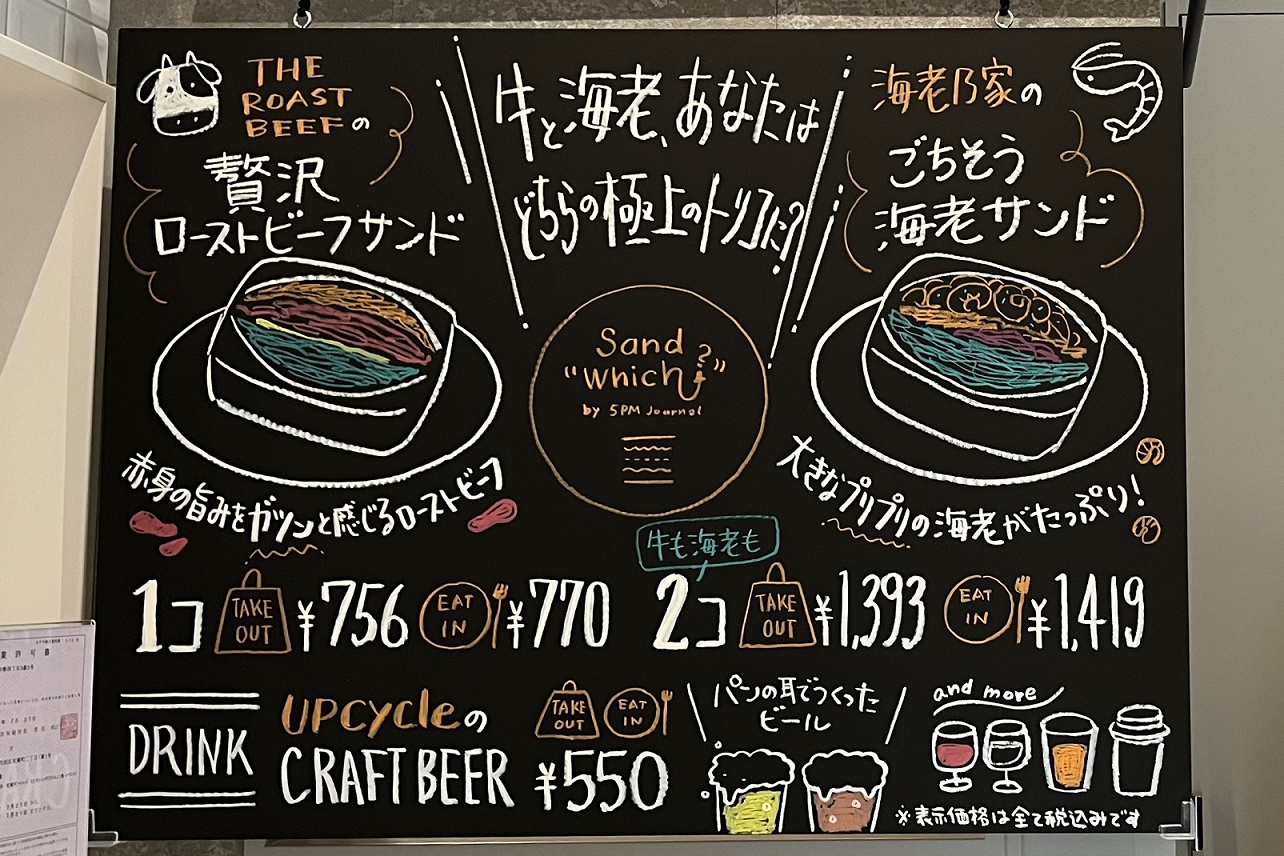 THE
ROAST
BEEFの
贅沢
ローストビーフサンド
牛と海老、あなたは
どちらの極上のトリコに?
海老乃家の
ごちそう
海老サンド
Sand
"which?"
by 5PM Journal
赤身の旨みをガツンと感じるローストビーフ
大きなプリプリの海老がたっぷり!
牛も海老も
1コ TAKE OUT ¥756 EAT IN ¥770
2コ TAKE OUT ¥1,393 EAT IN ¥1,419
DRINK
UPCYCLEの
CRAFT BEER
TAKE OUT EAT IN
¥550
パンの耳でつくった
ビール
and more
※表示価格は全て税込みです
業許可書